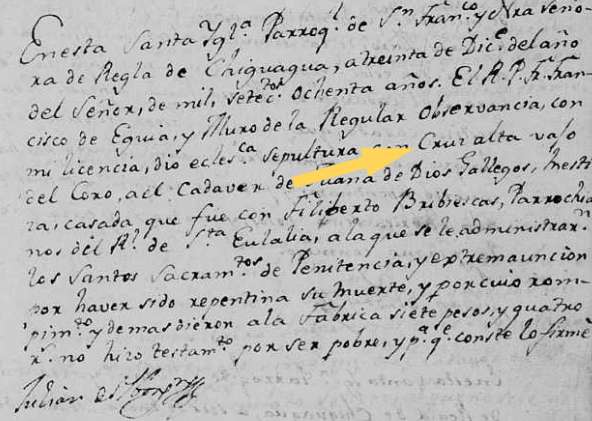 En esta Santa Ygl.ª Parroq.l de S.n Fran.co y Nra Seño-
ra de Regla de Chiguagua, a treinta de Dic.e del año
del Señor, de mil, setec.tos ochenta años. El R. P. Fr. Fran-
cisco de Eguia, y Muro de la Regular Observancia, con
mi licencia, dio ecles.ca sepultura con Cruz alta vajo
del Coro, a el Cadaver de Juana de Dios Gallegos, Mesti
za, casada que fue con Filiberto Bribiescas, Parrochia
nos del R.l de S.ta Eulalia, a la que se le administrar.n
los Santos Sacram.tos de Penitencia, y extremauncion
por haver sido repentina su muerte, y por cuio rom-
pim.to y demas dieron a la Fabrica siete pesos, y quatro
r.s no hizo testam.to por ser pobre, y p.ª q.e conste lo firmè
Julian de